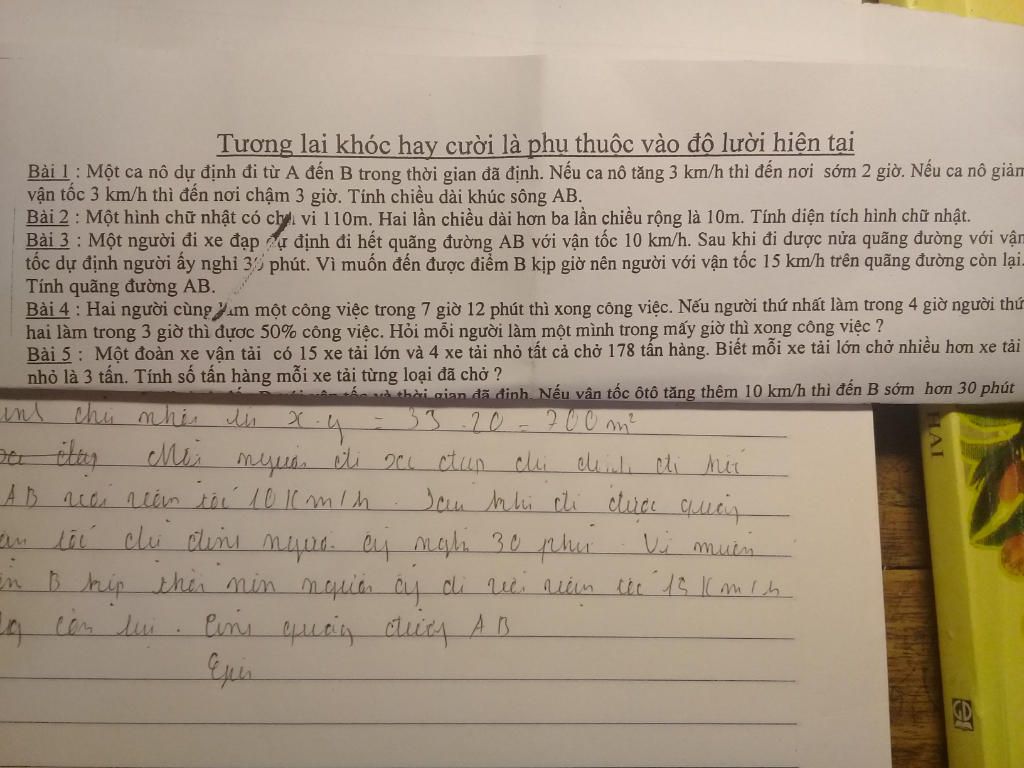 Tương lai khóc hay cười là phụ thuộc vào độ lười hiện tại
Bài 1 : Một ca nô dự định đi từ A đến B trong thời gian đã định. Nếu ca nô tăng 3 km/h thì đến nơi sớm 2 giờ. Nếu ca nô giảm
vận tốc 3 km/h thì đến nơi chậm 3 giờ. Tính chiều dài khúc sông AB.
Bài 2 : Một hình chữ nhật có chu vi 110m. Hai lần chiều dài hơn ba lần chiều rộng là 10m. Tính diện tích hình chữ nhật.
Bài 3 : Một người đi xe đạp dự định đi hết quãng đường AB với vận tốc 10 km/h. Sau khi đi dược nửa quãng đường với vận
tốc dự định người ấy nghỉ 30 phút. Vì muốn đến được điểm B kịp giờ nên người với vận tốc 15 km/h trên quãng đường còn lại.
Tính quãng đường AB.
Bài 4 : Hai người cùng làm một công việc trong 7 giờ 12 phút thì xong công việc. Nếu người thứ nhất làm trong 4 giờ người thứ
hai làm trong 3 giờ thì được 50% công việc. Hỏi mỗi người làm một mình trong mấy giờ thì xong công việc ?
Bài 5 : Một đoàn xe vận tải có 15 xe tải lớn và 4 xe tải nhỏ tất cả chở 178 tấn hàng. Biết mỗi xe tải lớn chở nhiều hơn xe tải
nhỏ là 3 tấn. Tính số tấn hàng mỗi xe tải từng loại đã chở ?
vận tốc và thời gian đã định. Nếu vận tốc ôtô tăng thêm 10 km/h thì đến B sớm hơn 30 phút
chữ nhật là x.y = 33.20 = 700m²
xe đạp Một người đi xe đạp dự định đi hết
AB với vận tốc 10 Km/h. Sau khi đi được quãng
tốc dự định người ấy nghỉ 30 phút. Vì muốn
B kịp thời nên người ấy đi với vận tốc 15 Km/h
còn lại. Tính quãng đường AB
Giải
HAI
GD